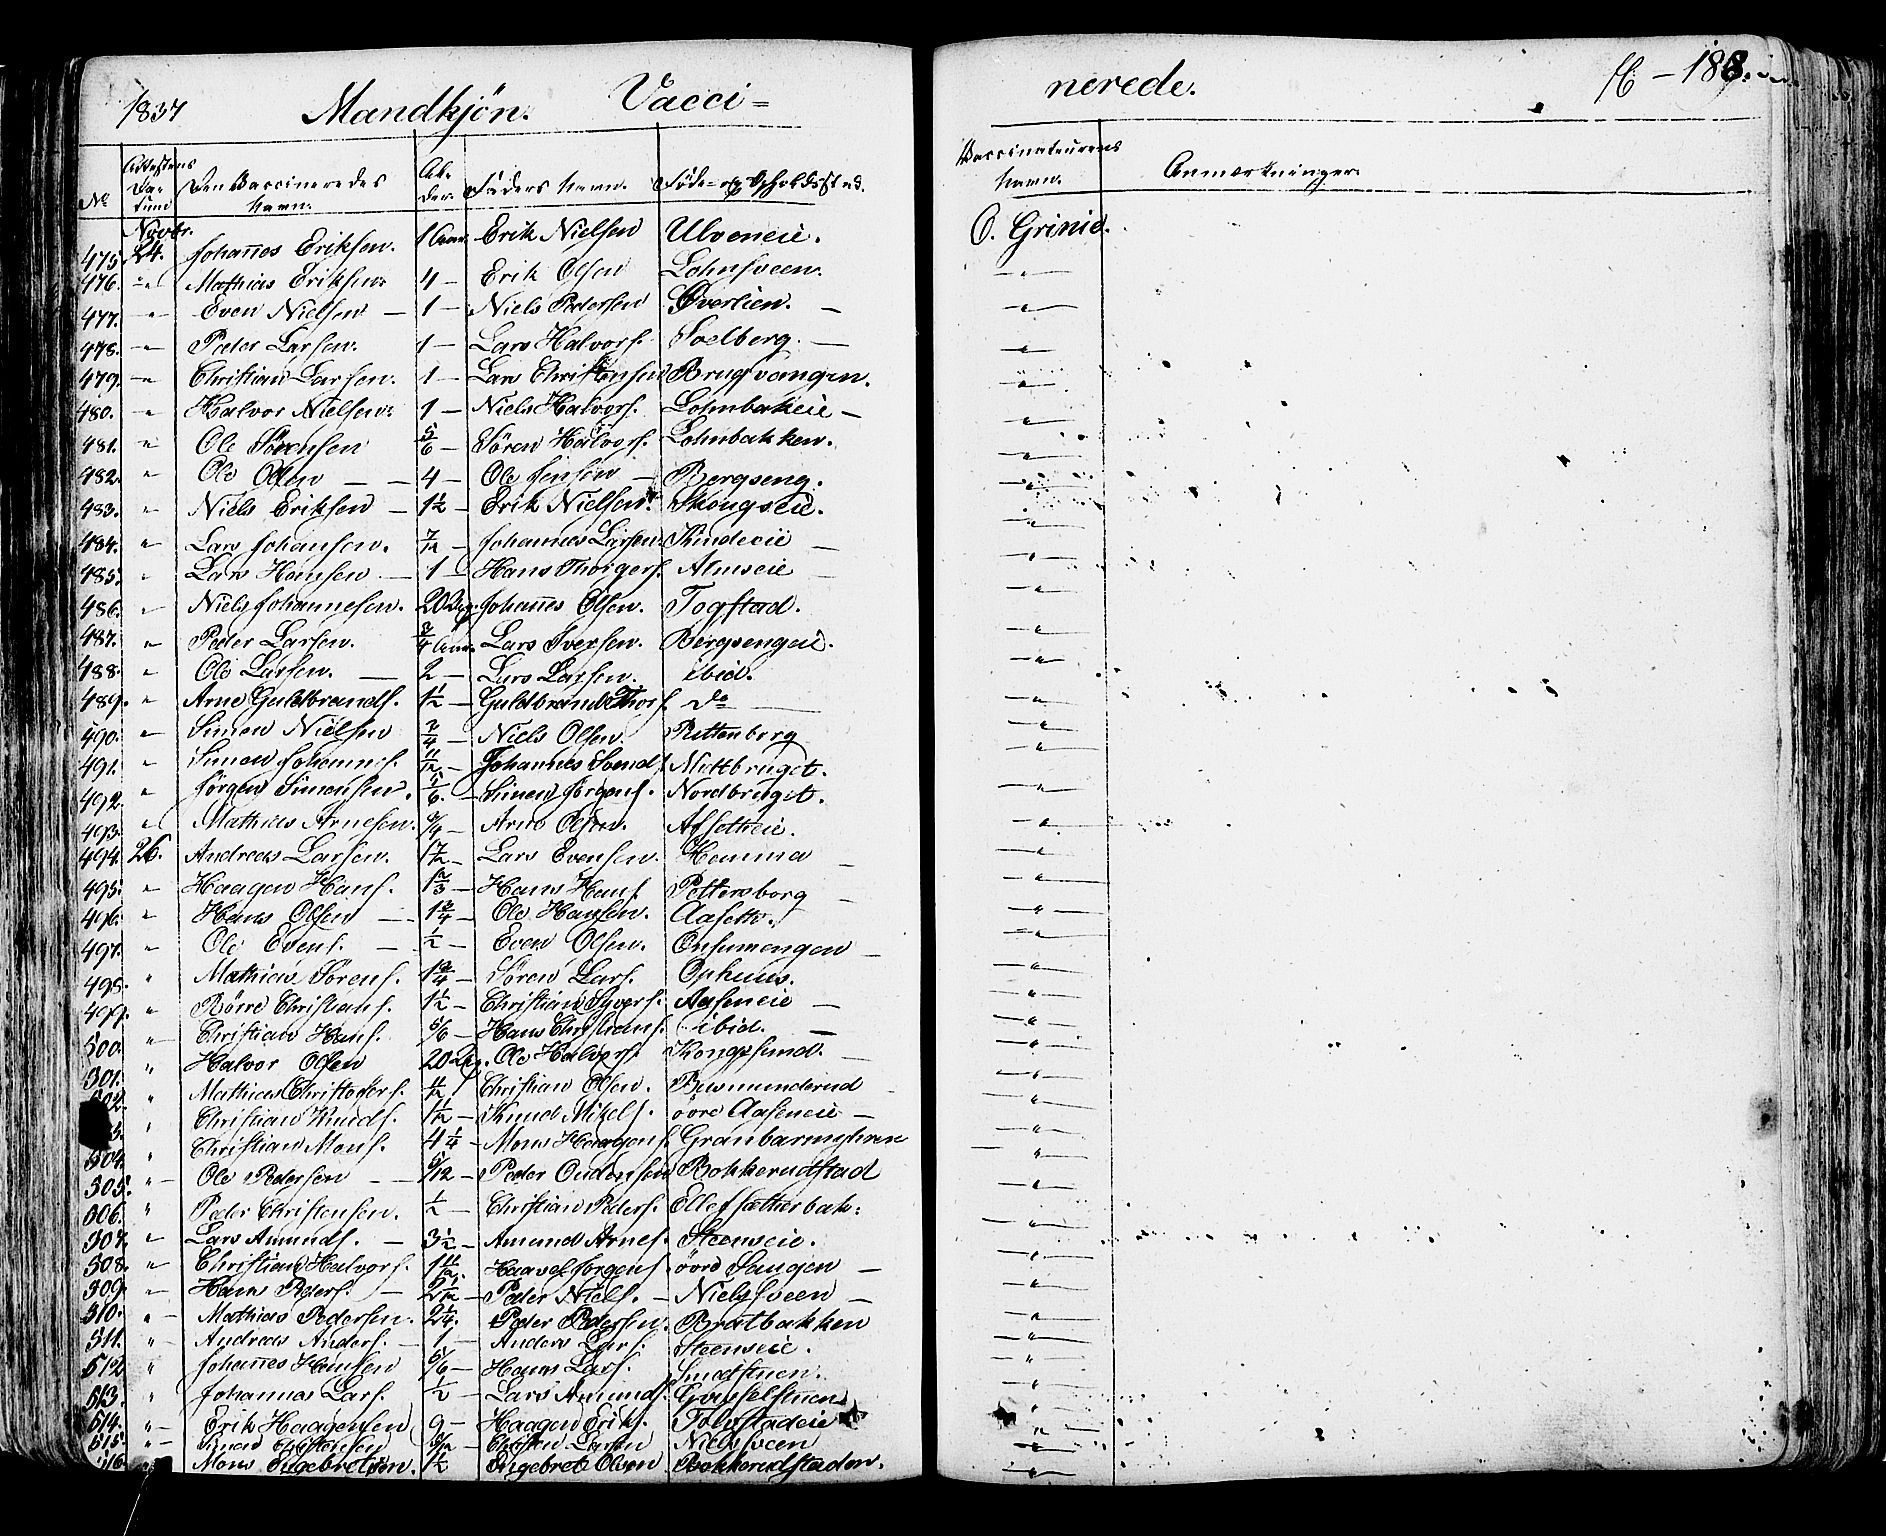 1837 Mandkjön. Vacci=
nerede. 188.
No Attestens Datum Den Vaccineredes Navn. Alder. Faders Navn. Føde- og Opholdssted. Vaccinateurens Navn. Anmærkninger.
Novbr.
475. 24. Johannes Eriksen. 1 Aar. Erik Nielsen Ulveneie. O. Grinie.
476. " Mathias Eriksen 4 — Erik Olsen Lohnsveen. — " —
477. " Even Nielsen — 1 — Niels Pedersen Øverlien. — — " —
478. " Peder Larsen. 1 — Lars Halvors. Soelberg. — — " —
479. " Christian Larsen. 1 — Lars Christensen Brugvangen. — " —
480. " Halvor Nielsen 1 — Niels Halvors. Lohnbakeie — — " —
481. " Ole Sörensen 5/6 — Sören Halvors. Lohnbakken. — " —
482. " Ole Olsen — — 4 — Ole Jensen — Bergseng. — " —
483. " Niels Eriksen — 1 1/2 — Erik Nielsen. Skougseie. — " —
484. " Lars Johansen. 7/12 — Johannes Larsen — " —
485. " Lars Hansen — 1 — Hans Thorgers. Almseie — — " —
486. " Niels Johannesen. 20 Johannes Olsen. Togstad. — " —
487. " Peder Larsen. 3/4 Aar. Lars Iversen. Bergsengeie. — " —
488. " Ole Larsen. — 2 — Lars Larsen. ibid. — " —
489. " Arne Guldbrands. 1 1/2 — Guldbrand Thors. do — — " —
490. " Simen Nielsen 3/4 — Niels Olsen. — " —
491. " Simen Johannes. 11/12 — Johannes Svends. Mittbruget. — " —
492. " Jørgen Simensen. 5/6. — Simen Jörgens. Nordbruget. — " —
493. " Mathias Arnesen. 3/4 — Arne Olsen. — " —
494. 26. Andreas Larsen. — Lars Evensen. Homma — — " —
495. " Haagen Hans. 1 2/3 — Hans Hans. Pettersborg — — " —
496. " Hans Olsen — 1 3/4 — Ole Hansen. Aasette. — " —
497. " Ole Evens. — 1/2 — Even Olsen. — " —
498. " Mathias Sörens. 1 3/4 — Sören Lars. Ophuus. — " —
499. " Börre Christians. 1 1/2 — Christian Syvers. Aaseneie — — " —
500. " Christian Hans. 5/6 — Hans Christians. ibid. — — " —
501. " Halvor Olsen 20 Ole Halvors. Kongssund. — — " —
502. " Mathias Christophers. Christian Olsen. Busmunderud — " —
" Christian Knuds. 1 1/2 — Knud Mikels. övre Aaseneie — — " —
504. " Christian Mons. 4 1/4 — Mons Haagens. — " —
505. " Ole Pedersen — 5/12 — Peder Oudensen Bokkerudstad — " —
506. " Peder Christensen. 1/2 — Christian Peders. Ellefsætherbak: — " —
507. " Lars Amunds. — 3 1/2 — Amund Arnes. Steenseie. — " —
508. " Christian Halvors. 1 11/12 Haavel Jørgens. övre Saugen — — " —
509. " Hans Peders. — Peder Niels. — Nielsveen — — " —
510. " Mathias Pedersen. 2 1/4. Peder Pedersen. Bratbakken — " —
511. " Andreas Anders. — 1 — Anders Lars. Steenseie. — " —
512 " Johannes Hansen 5/6 — Hans Lars. — " —
513. " Johannes Lars. 1/2 — Lars Amunds. — " —
514. " Erik Haagensen 9 — Haagen Eriks. — " —
515. " Simen Christensen Christen Larsen Nielsveen — " —
516 Mons Engebretsen. 1 1/2 Engebret Olsen Bokkerudstaden. — " —